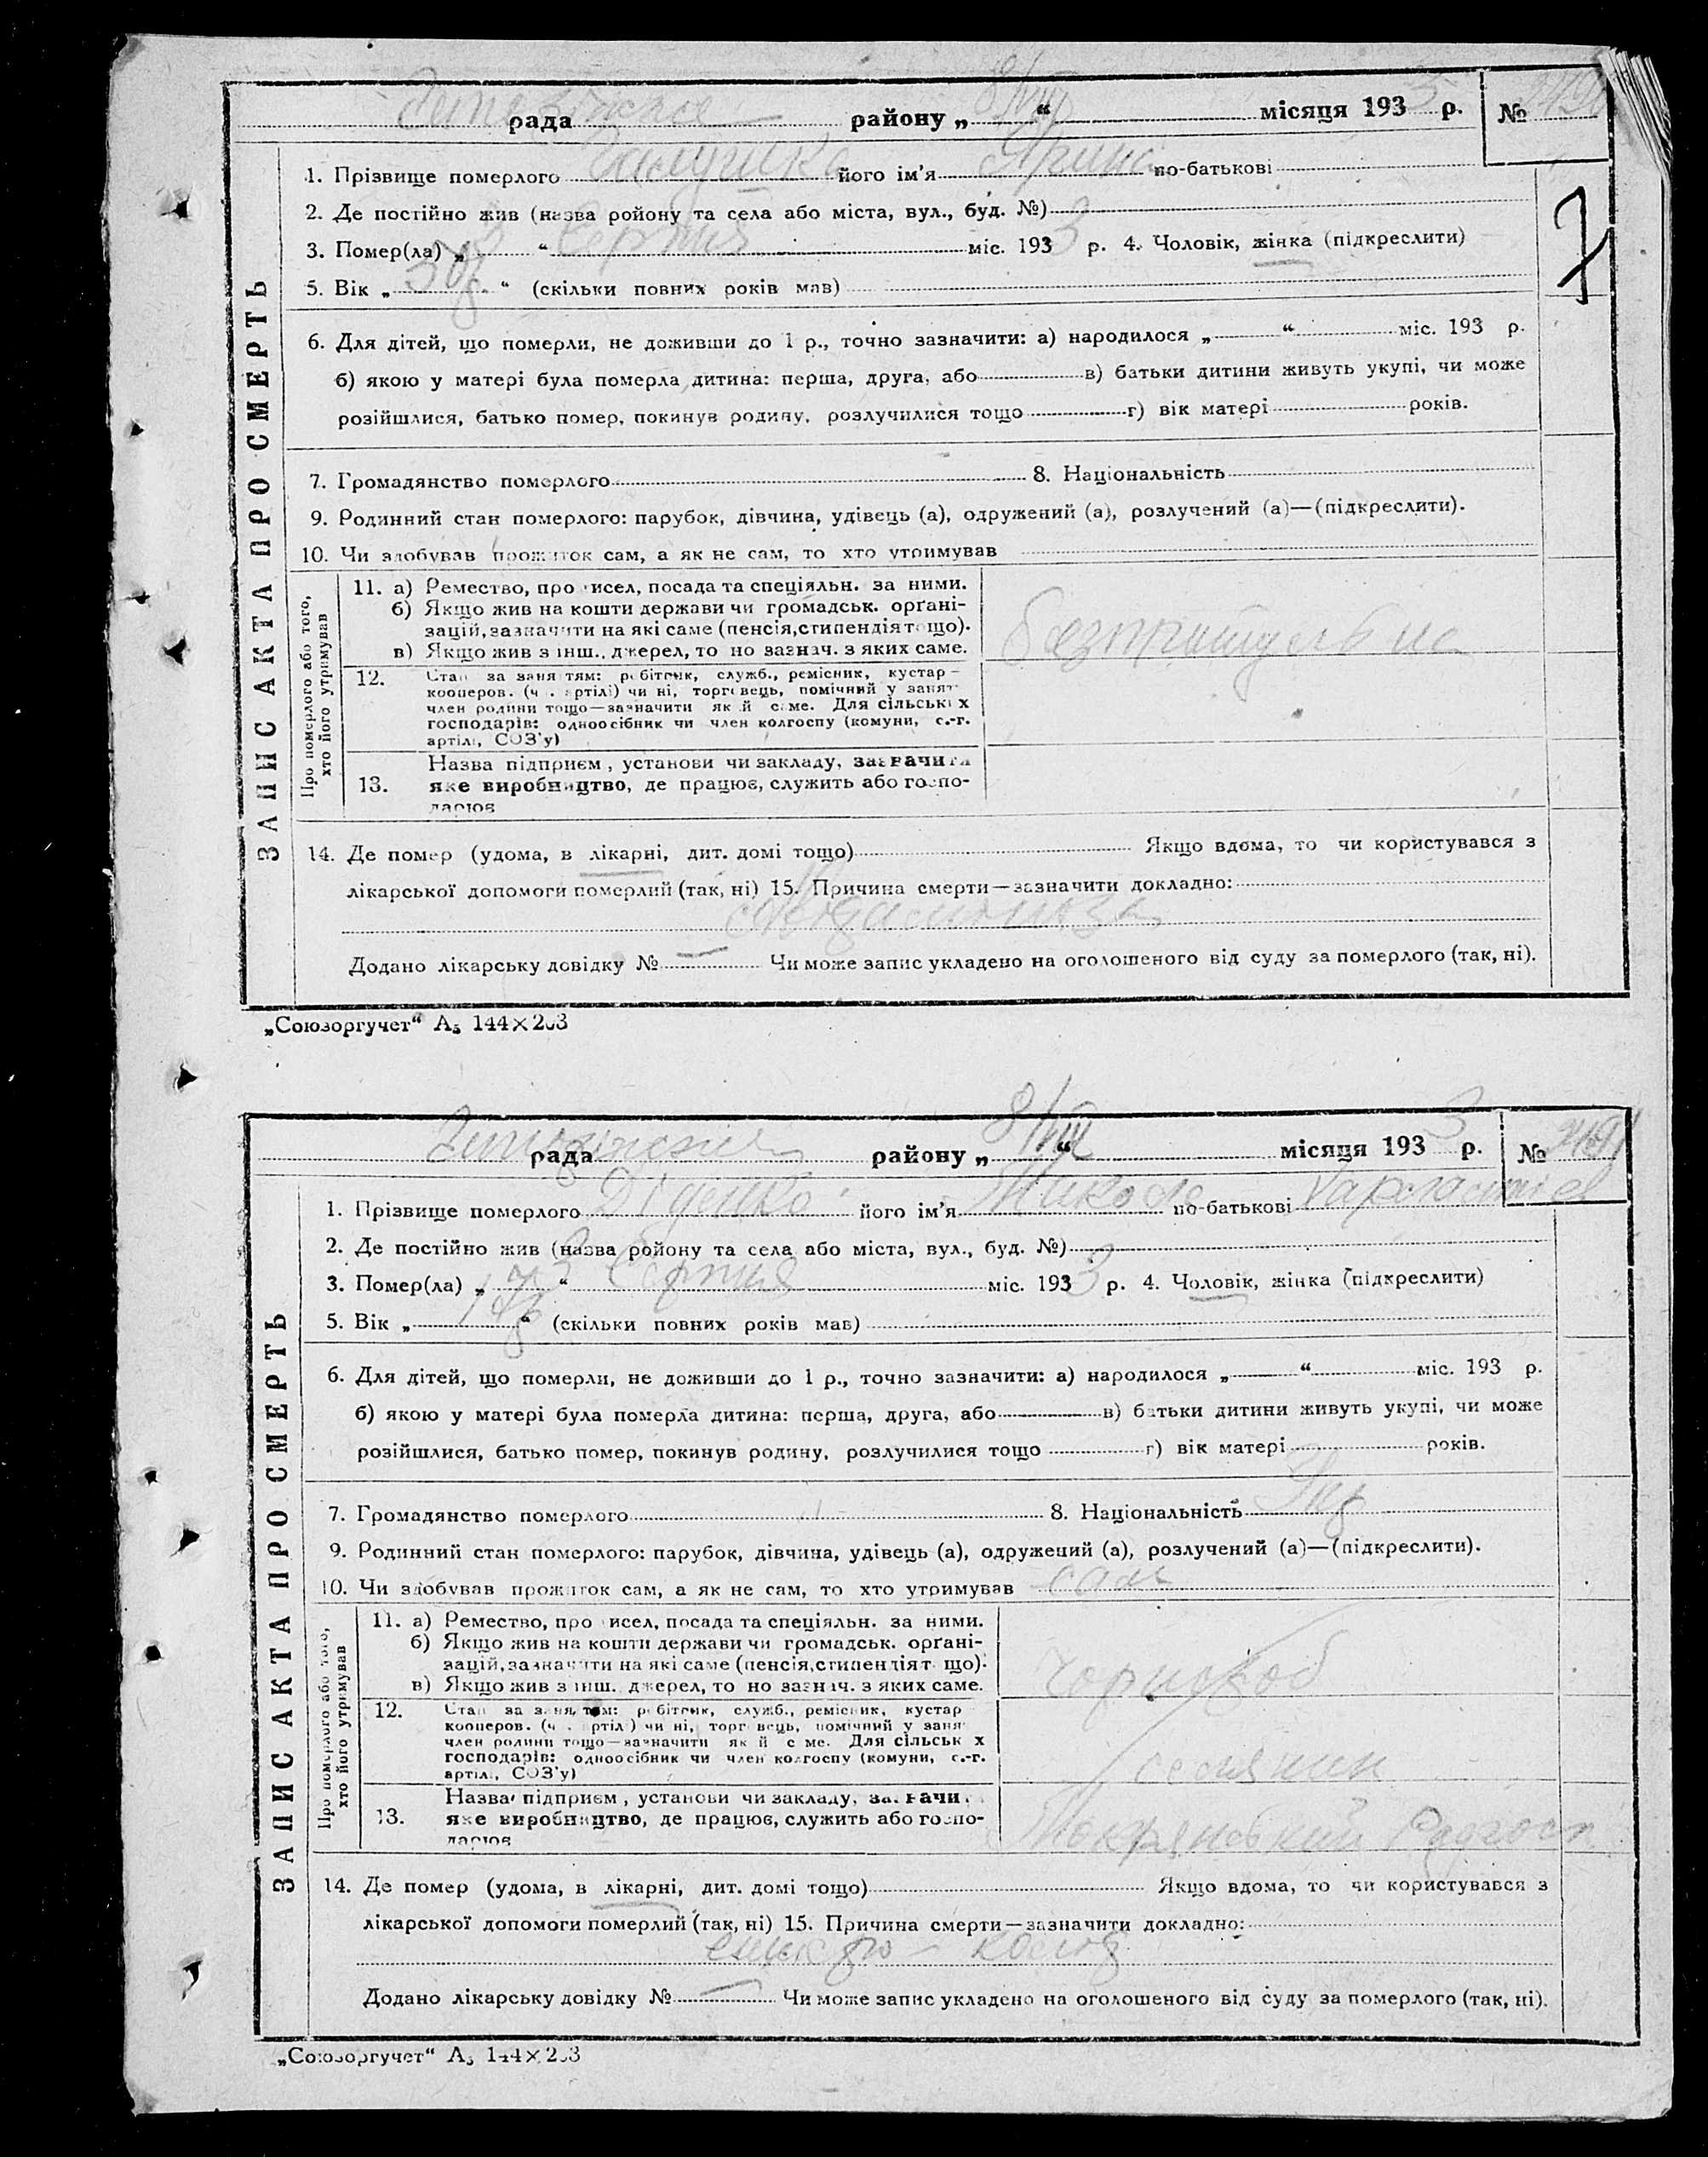 рада району „8/VIII“ місяця 1933 р. №
1. Прізвище померлого його ім'я по-батькові
2. Де постійно жив (назва ройону та села або міста, вул., буд. №)
3. Помер(ла) „3“ Серпня міс. 1933 р. 4. Чоловік, жінка (підкреслити)
5. Вік „ “ (скільки повних років мав)
6. Для дітей, що померли, не доживши до 1 р., точно зазначити: а) народилося „ “ міс. 193 р.
б) якою у матері була померла дитина: перша, друга, або в) батьки дитини живуть укупі, чи може
розійшлися, батько помер, покинув родину, розлучилися тощо г) вік матері років.
7. Громадянство померлого 8. Національність
9. Родинний стан померлого: парубок, дівчина, удівець (а), одружений (а), розлучений (а)—(підкреслити).
10. Чи здобував прожиток сам, а як не сам, то хто утримував
ЗАПИС АКТА ПРО СМЕРТЬ
Про померлого або того,
хто його утримував
11. а) Ремество, про исел, посада та спеціяльн. за ними.
б) Якщо жив на кошти держави чи громадськ. орґані-
зацій, зазначити на які саме (пенсія, стипендія тощо).
в) Якщо жив з інш. джерел, то но зазнач. з яких саме.
безпритульна
12. Стан за заняттям: робітник, служб., ремісник, кустар—
кооперов. (ч артілі) чи ні, торговець, помічний у занят
член родини тощо—зазначити як й саме. Для сільських
господарів: одноосібник чи член колгоспу (комуни, с.-г.
артілі, СОЗ'у)
13. Назва підприєм, установи чи закладу, зазначити
яке виробництво, де працює, служить або госпо-
дарює
14. Де помер (удома, в лікарні, дит. домі тощо) Якщо вдома, то чи користувався з
лікарської допомоги померлий (так, ні) 15. Причина смерти—зазначити докладно:
Додано лікарську довідку № — Чи може запис укладено на оголошеного від суду за померлого (так, ні).
„Союзоргучет“ А₅ 144×203
7
рада району „8/VIII“ місяця 1933 р. №
1. Прізвище померлого Діденко його ім'я Микола по-батькові
2. Де постійно жив (назва ройону та села або міста, вул., буд. №)
3. Помер(ла) „3“ Серпня міс. 1933 р. 4. Чоловік, жінка (підкреслити)
5. Вік „ “ (скільки повних років мав)
6. Для дітей, що померли, не доживши до 1 р., точно зазначити: а) народилося „ “ міс. 193 р.
б) якою у матері була померла дитина: перша, друга, або в) батьки дитини живуть укупі, чи може
розійшлися, батько помер, покинув родину, розлучилися тощо г) вік матері років.
7. Громадянство померлого 8. Національність Укр
9. Родинний стан померлого: парубок, дівчина, удівець (а), одружений (а), розлучений (а)—(підкреслити).
10. Чи здобував прожиток сам, а як не сам, то хто утримував сам
ЗАПИС АКТА ПРО СМЕРТЬ
Про померлого або того,
хто його утримував
11. а) Ремество, про исел, посада та спеціяльн. за ними.
б) Якщо жив на кошти держави чи громадськ. орґані-
зацій, зазначити на які саме (пенсія, стипендія т що).
в) Якщо жив з інш. джерел, то но зазнач. з яких саме.
чорнороб
12. Стан за заняттям: робітник, служб., ремісник, кустар
кооперов. (ч артілі) чи ні, торговець, помічний у занят
член родини тощо—зазначити як й саме. Для сільських
господарів: одноосібник чи член колгоспу (комуни, с.-г.
артілі, СОЗ'у)
селянин
13. Назва підприєм, установи чи закладу, зазначити
яке виробництво, де працює, служить або госпо-
дарює
Радгосп
14. Де помер (удома, в лікарні, дит. домі тощо) Якщо вдома, то чи користувався з
лікарської допомоги померлий (так, ні) 15. Причина смерти—зазначити докладно:
Додано лікарську довідку № — Чи може запис укладено на оголошеного від суду за померлого (так, ні).
„Союзоргучет“ А₅ 144×203